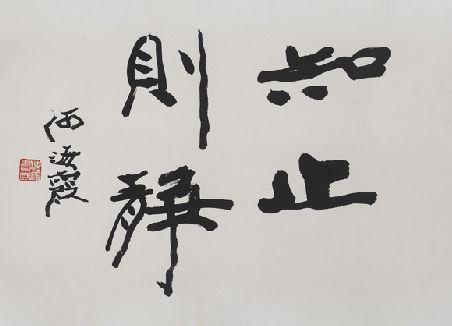 知止
則靜
何海霞